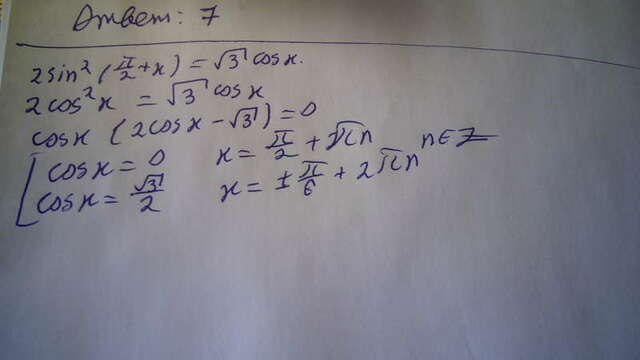 Ответ: 7
2sin²(π/2+x) = √3 cosx.
2cos²x = √3 cosx
cosx (2cosx − √3) = 0
[ cosx = 0 x = π/2 + πn n∈Z
cosx = √3/2 x = ±π/6 + 2πn